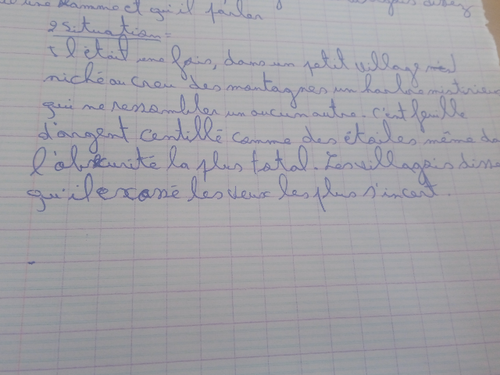 et qu'il parler
2 situation =
il était une fois, dans un petit village
niché au creu des montagnes un
qui ne ressembler un aucun autre. c'est feuille
d'argent centillé comme des étoiles même da
l'obscurité la plus total. Les villagois disse
qu'il exossé les veux les plus s'incert.